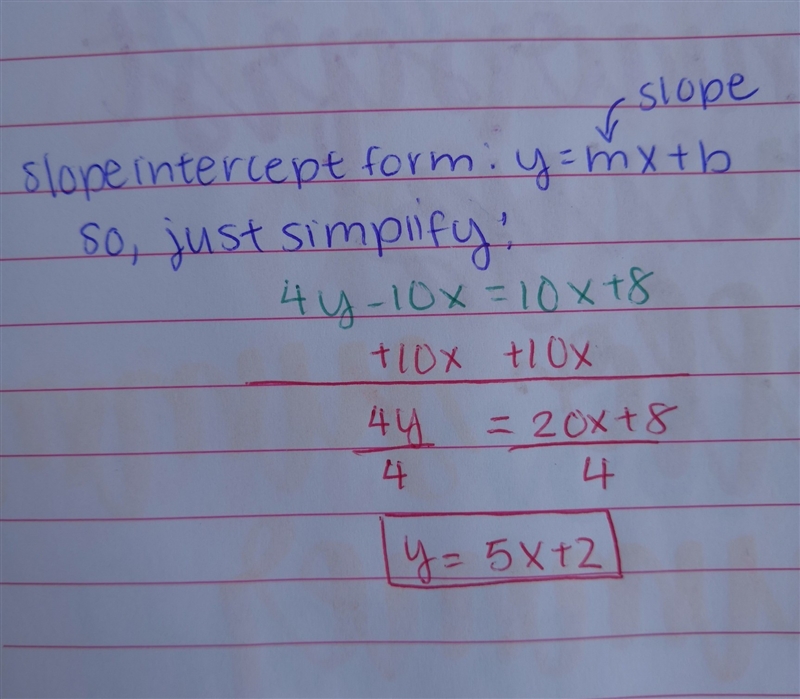 slope
slope intercept form: y=mx+b
so, just simplify:
4y-10x=10x+8
+10x +10x
4y = 20x+8
4 4
y= 5x+2